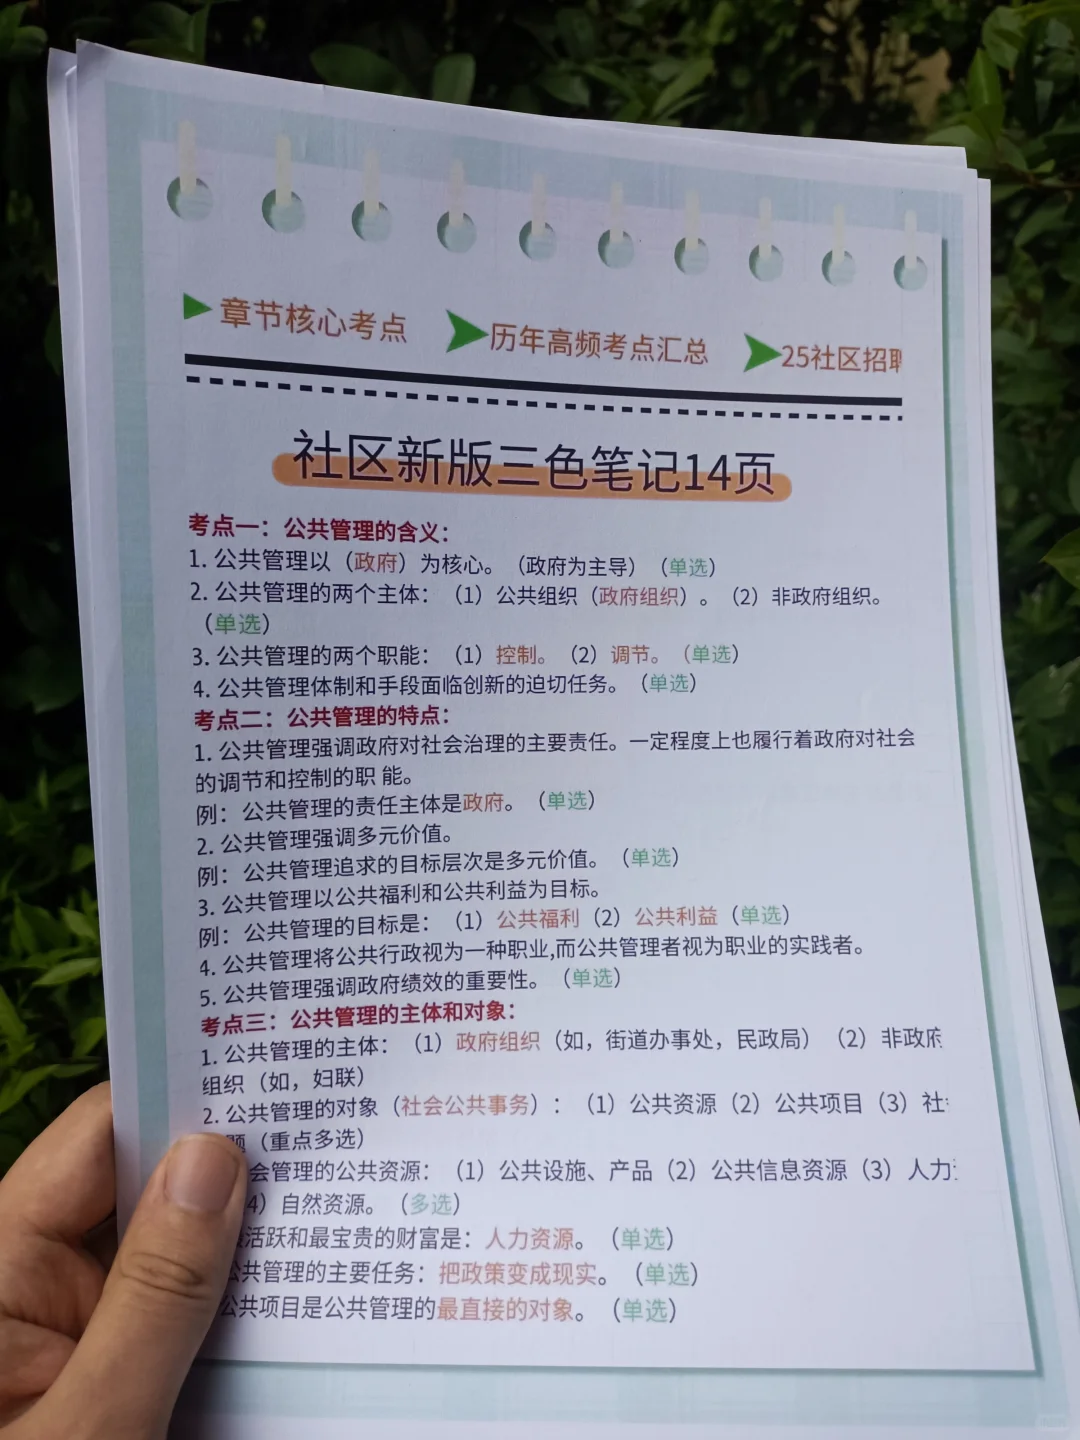 章节核心考点 历年高频考点汇总 25社区招聘
社区新版三色笔记14页
考点一：公共管理的含义：
1. 公共管理以（政府）为核心。（政府为主导）（单选）
2. 公共管理的两个主体：（1）公共组织（政府组织）。（2）非政府组织。
（单选）
3. 公共管理的两个职能：（1）控制。（2）调节。（单选）
4. 公共管理体制和手段面临创新的迫切任务。（单选）
考点二：公共管理的特点：
1. 公共管理强调政府对社会治理的主要责任。一定程度上也履行着政府对社会
的调节和控制的职 能。
例：公共管理的责任主体是政府。（单选）
2. 公共管理强调多元价值。
例：公共管理追求的目标层次是多元价值。（单选）
3. 公共管理以公共福利和公共利益为目标。
例：公共管理的目标是：（1）公共福利（2）公共利益（单选）
4. 公共管理将公共行政视为一种职业,而公共管理者视为职业的实践者。
5. 公共管理强调政府绩效的重要性。（单选）
考点三：公共管理的主体和对象：
1. 公共管理的主体：（1）政府组织（如，街道办事处，民政局）（2）非政府
组织（如，妇联）
2. 公共管理的对象（社会公共事务）：（1）公共资源（2）公共项目（3）社
题（重点多选）
会管理的公共资源：（1）公共设施、产品（2）公共信息资源（3）人力
4）自然资源。（多选）
活跃和最宝贵的财富是：人力资源。（单选）
公共管理的主要任务：把政策变成现实。（单选）
公共项目是公共管理的最直接的对象。（单选）